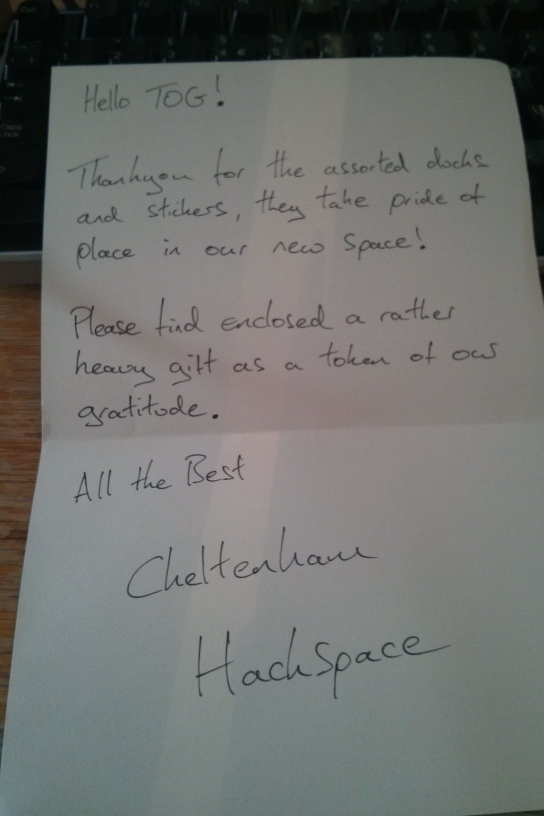 Hello TOG!
Thankyou for the assorted
and stickers, they take pride of
place in our new space!
Please find enclosed a rather
heavy gift as a token of our
gratitude.
All the Best
Cheltenham
HackSpace
Caps
Lock